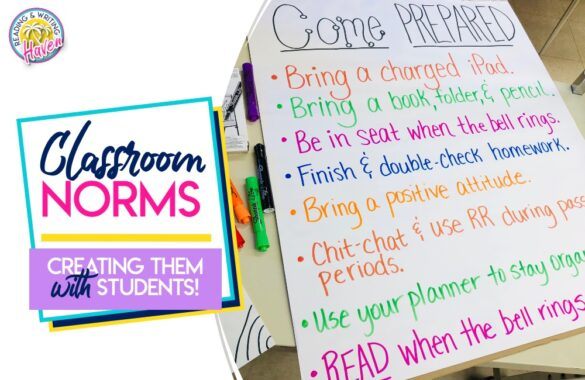 READING & WRITING
Haven
Classroom
NORMS
CREATING THEM
with STUDENTS!
Come PREPARED
• Bring a charged iPad.
• Bring a book, folder, & pencil.
• Be in seat when the bell rings.
• Finish & double-check homework.
• Bring a positive attitude.
• Chit-chat & use RR during pass
periods.
• Use your planner to stay orga
• READ when the bell rings